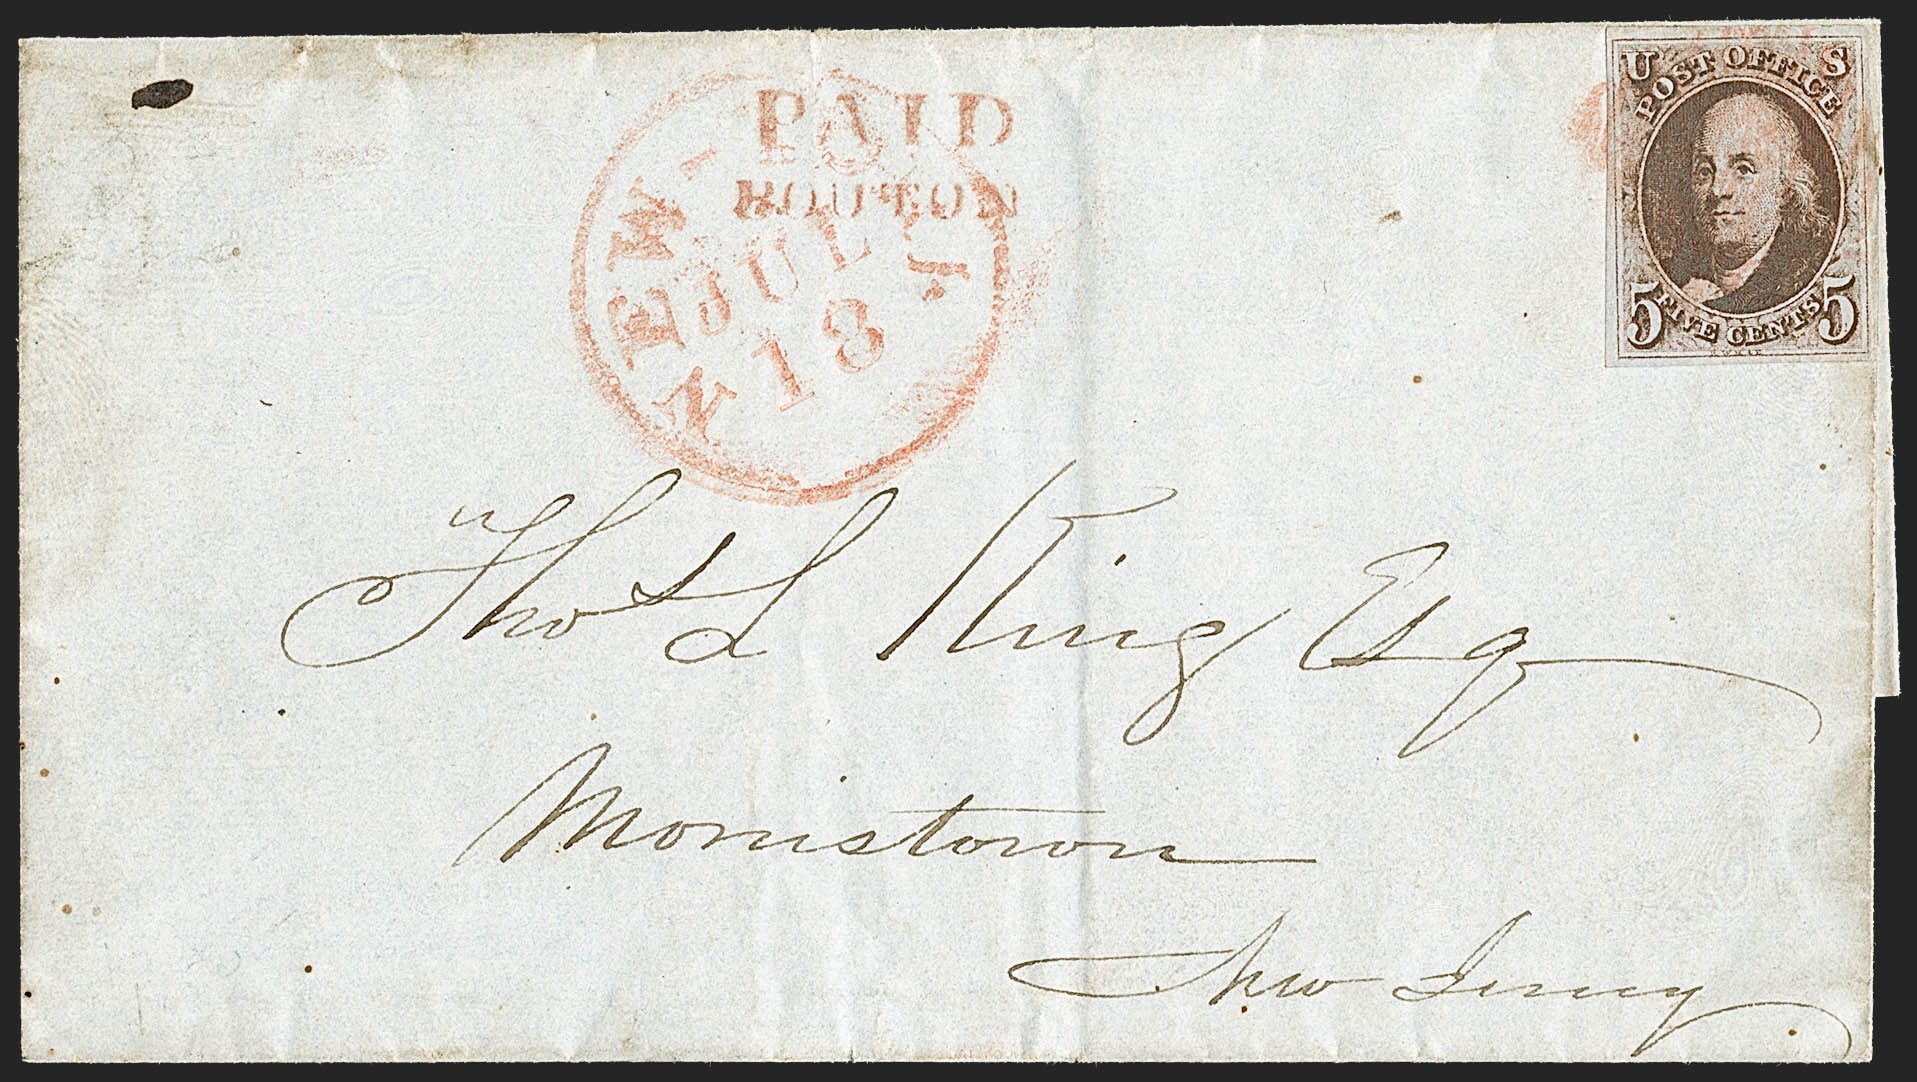 PAID
BOUTON
NEW-
JUL
18
U S
POST OFFICE
5 FIVE CENTS 5
Thos L King Esq
Morristown
New Jersey